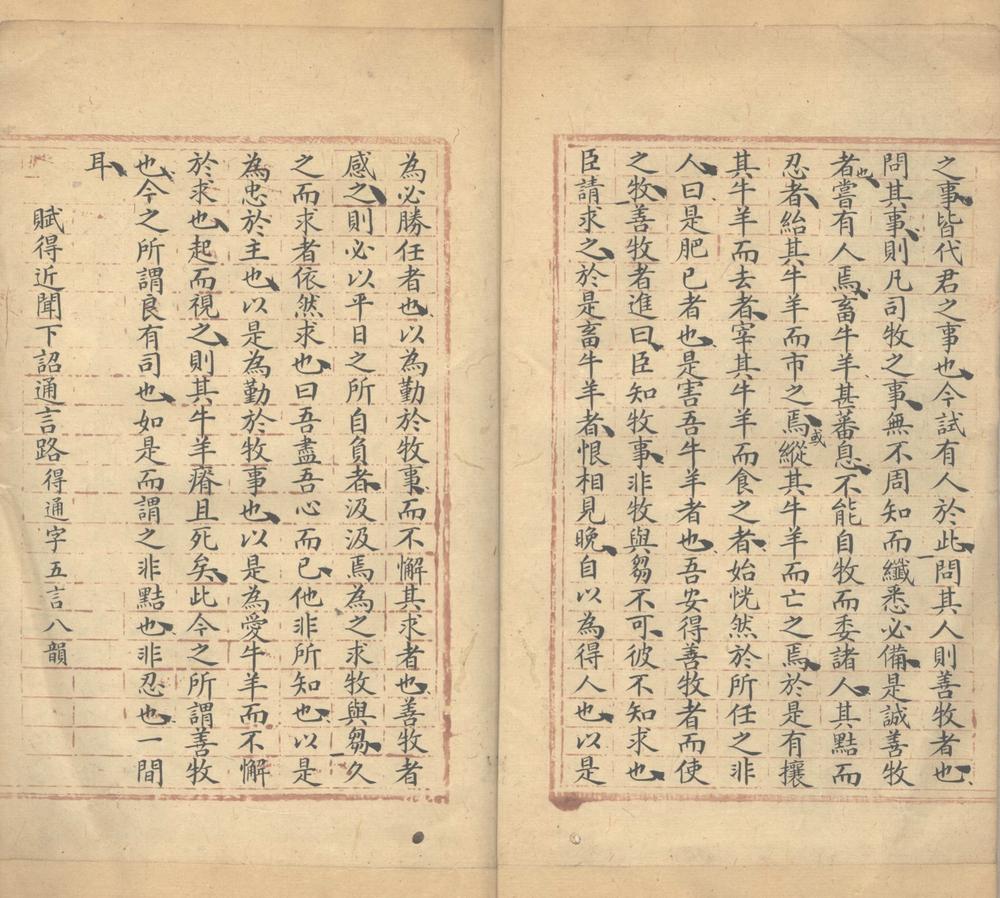 之事皆代君之事也今試有人於此問其人則善牧者也
問其事則凡司牧之事無不周知而纖悉必備是誠善牧
者也嘗有人焉畜牛羊甚蕃息不能自牧而委諸人其黠而
忍者紿其牛羊而市之焉或縱其牛羊而亡之焉於是有攘
其牛羊而去者宰其牛羊而食之者始恍然於所任之非
人曰是肥已者也是害吾牛羊者也吾安得善牧者而使
之牧善牧者進曰臣知牧事非牧與芻不可彼不知求也
臣請求之於是畜牛羊者恨相見晚自以為得人也以是
為必勝任者也以為勤於牧事而不懈其求者也善牧者
感之則必以平日之所自負者汲汲焉為之求牧與芻久
之而求者依然求也曰吾盡吾心而已他非所知也以是
為忠於主也以是為勤於牧事也以是為愛牛羊而不懈
於求也起而視之則其牛羊瘠且死矣此今之所謂善牧
也今之所謂良有司也如是而謂之非黠也非忍也一間
耳
賦得近聞下詔通言路得通字五言八韻